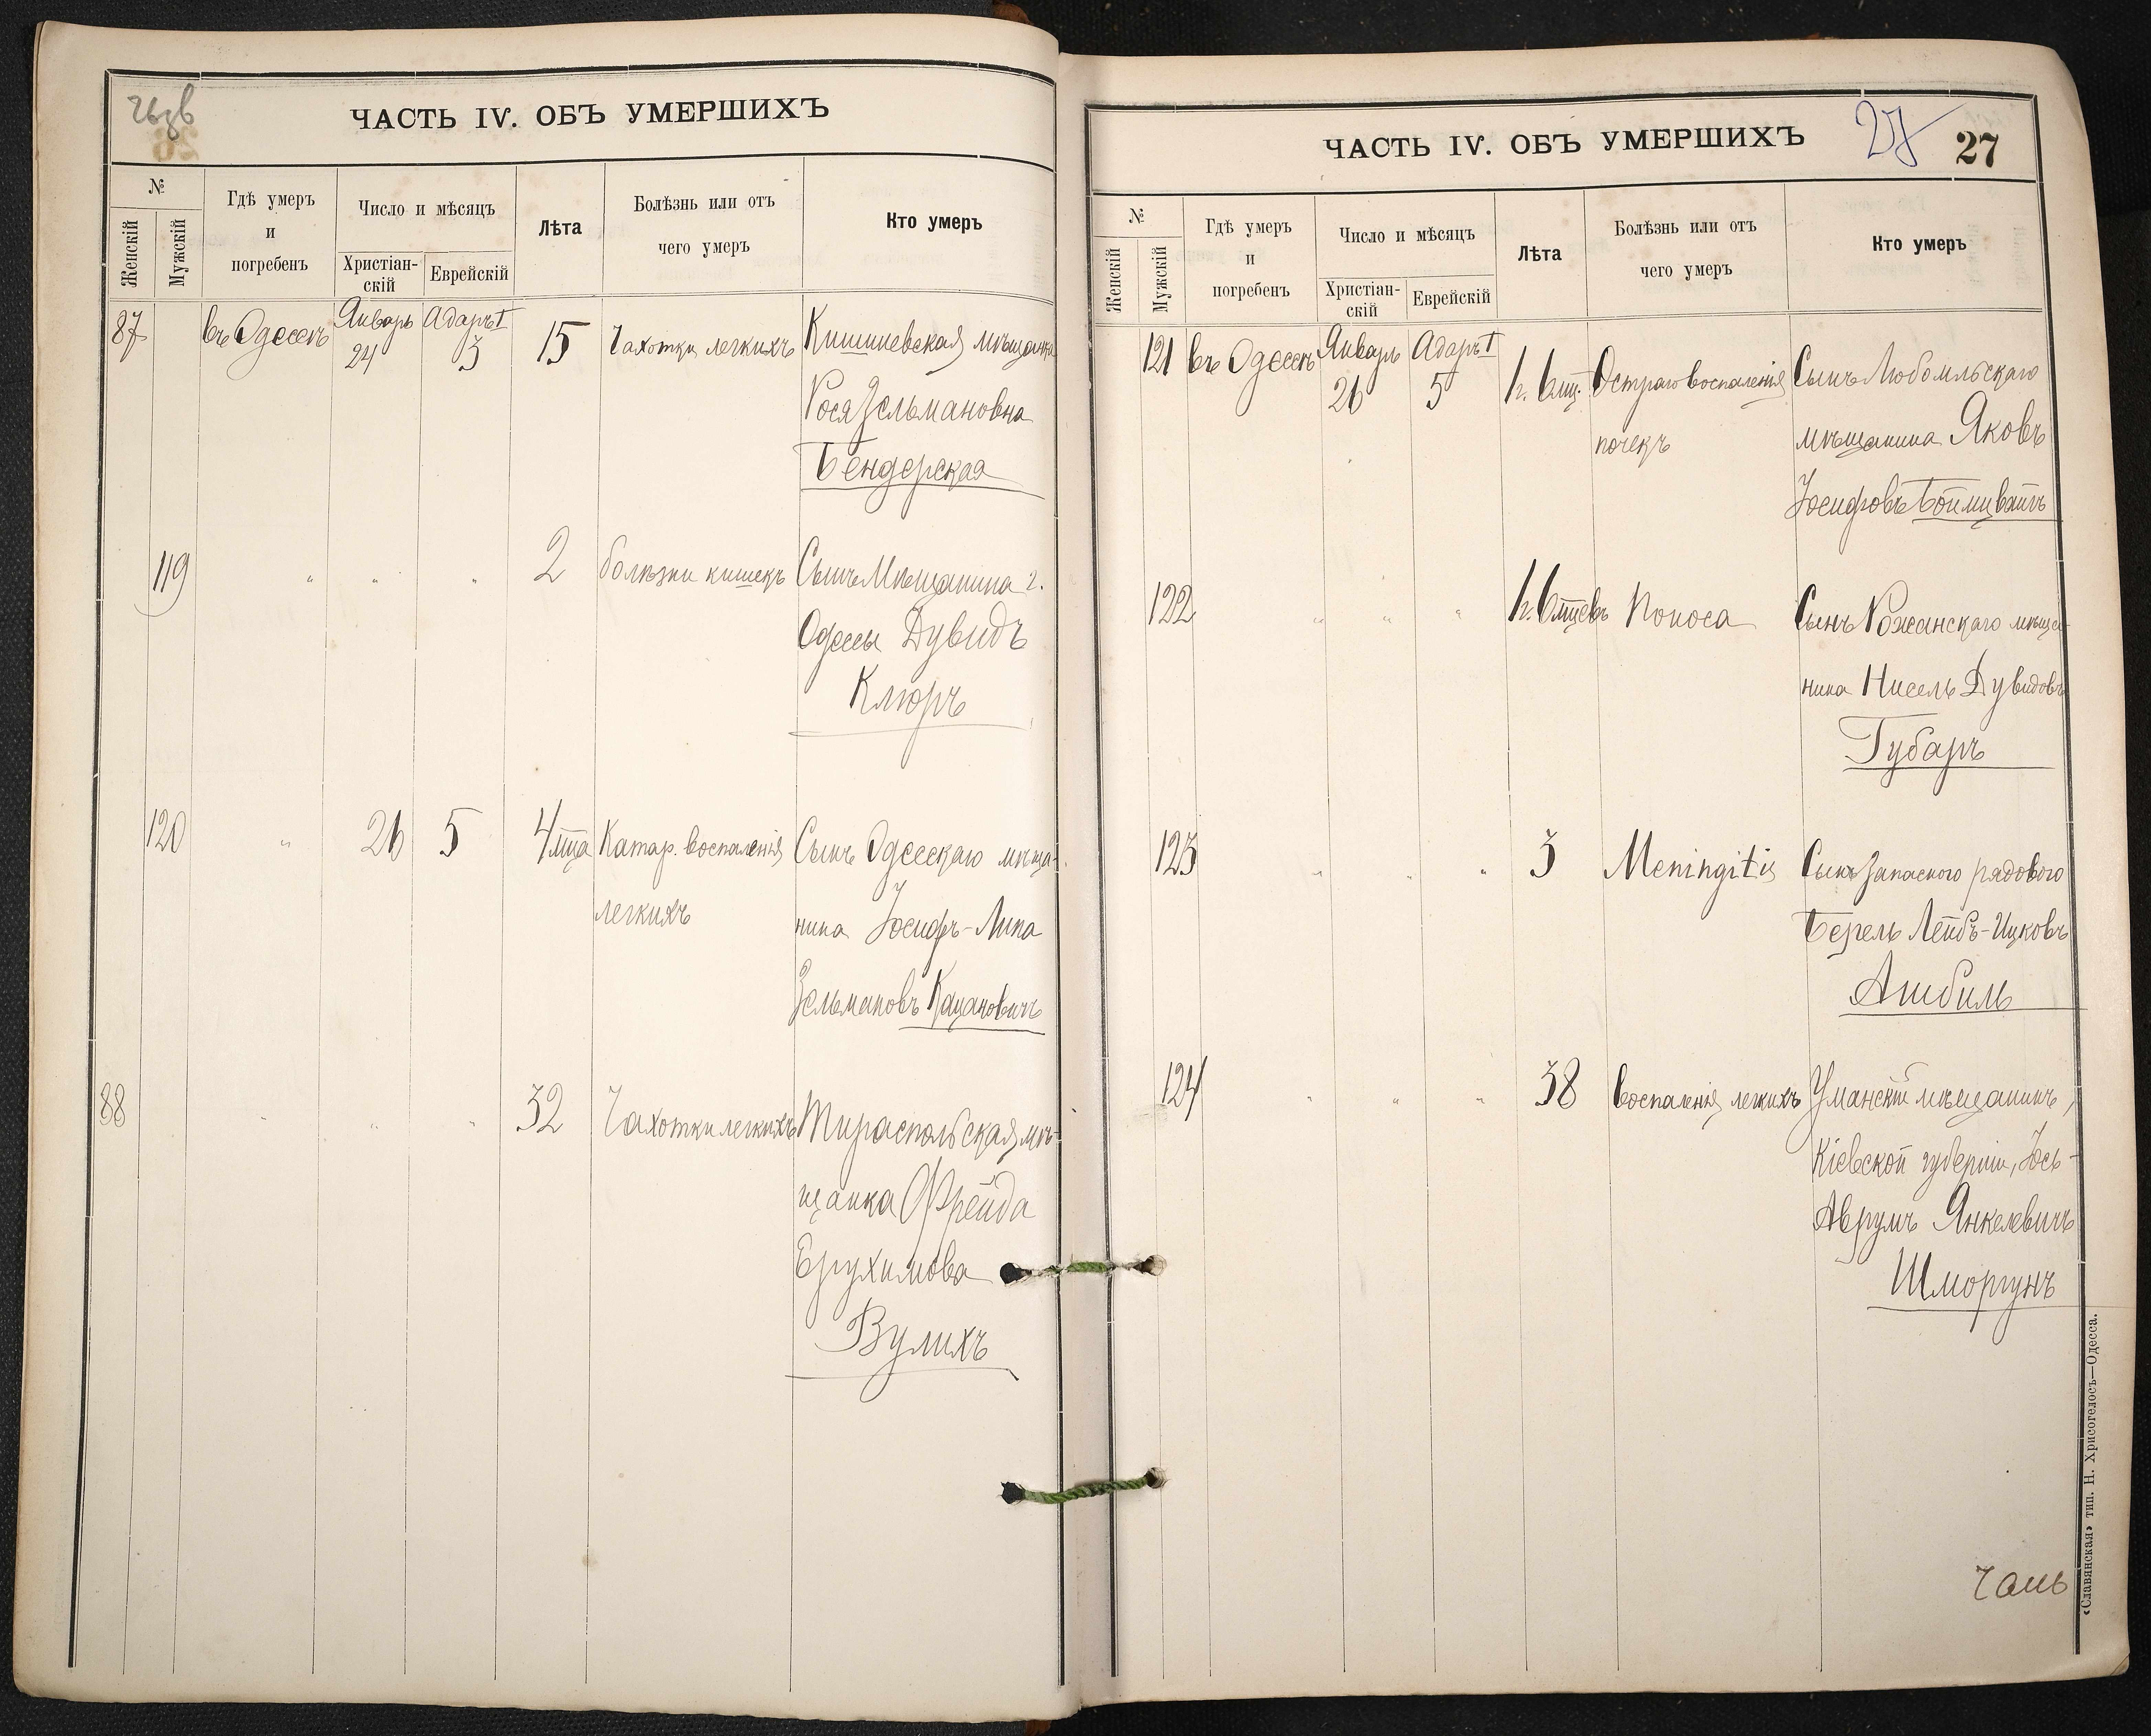 26 об
ЧАСТЬ IV. ОБЪ УМЕРШИХЪ
№
Женскій
Мужскій
Гдѣ умеръ
и
погребенъ
Число и мѣсяцъ
Христіан-
скій
Еврейскій
Лѣта
Болѣзнь или отъ
чего умеръ
Кто умеръ
87 въ Одессѣ Январь 24 Адаръ I 3 15 Чахотки легкихъ Кишиневская мѣщанка
Рося Зельмановна
Бендерская
119 " " " 2 болѣзни кишекъ Сынъ Мѣщанина г.
Одессы Дувидъ
Клюръ
120 " 26 5 4 м̅ца Катар. воспаленія Сынъ Одесскаго мѣща-
легкихъ нина Іосифъ-Липа
Зельмановъ Кацановичъ
88 " " " 32 Чахотки легкихъ Тираспольская мѣ-
щанка Фрейда
Ерухимова
Вулихъ
27 27
ЧАСТЬ IV. ОБЪ УМЕРШИХЪ
№
Женскій
Мужскій
Гдѣ умеръ
и
погребенъ
Число и мѣсяцъ
Христіан-
скій
Еврейскій
Лѣта
Болѣзнь или отъ
чего умеръ
Кто умеръ
121 въ Одессѣ Январь 26 Адаръ I 5 1 г. 6 мц. Остраго воспаленія Сынъ Любомльскаго
почекъ мѣщанина Яковъ
Іосифовъ
122 " " " 1 г. 6 м̅цевъ Поноса Сынъ Рожанскаго мѣща-
нина Нисель Дувидовъ
Губаръ
123 " " " 3 Meningitis Сынъ Запасного рядового
Берель Лейбъ-Ицковъ
Ашбиль
124 " " " 38 воспаленія легкихъ Уманскій мѣщанинъ,
Кіевской губерніи, Іось-
Аврумъ Янкелевичъ
Шморгунъ
«Славянская» тип. Н. Хрисогелосъ—Одесса.